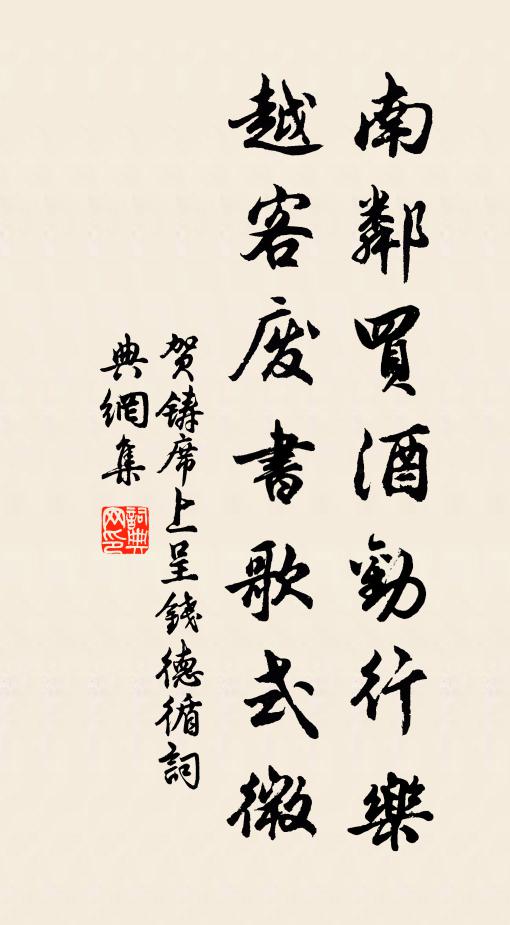 南鄰買酒勸行樂
越客廢書歌式微
賀鑄席上呈錢德循詞
典網集
詞典網印